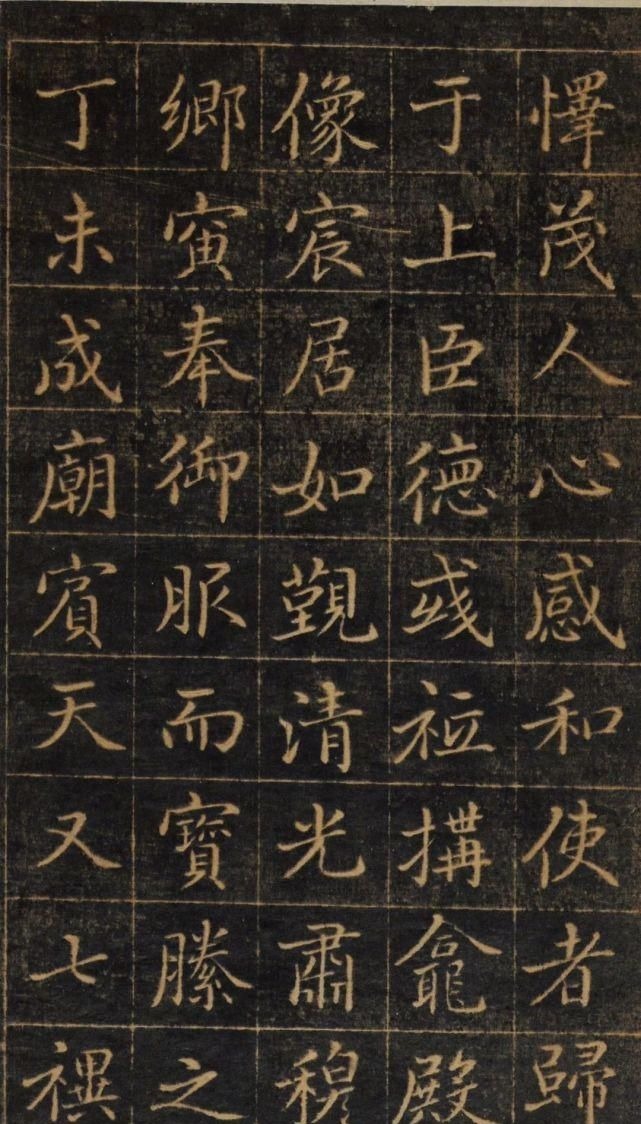 懌茂人心感和使者歸
于上臣德彧祗搆龕殿
像宸居如覲清光肅穆
鄉寅奉御服而寶縢之
丁未成廟賓天又七禩